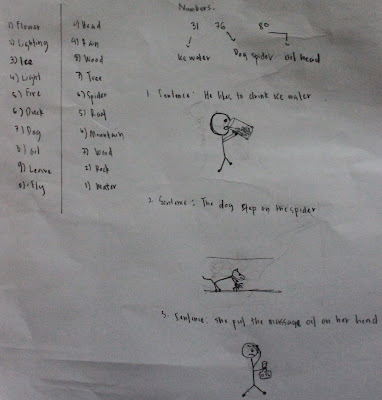 Numbers:
31 76 80
Ice water Dog spider oil head
1) Flower
2) Lighting
3) Ice
4) Light
5) Fire
6) Duck
7) Dog
8) oil
9) Leave
0) Fly
0) Head
9) Rain
8) Wood
7) Tree
6) Spider
5) Roof
4) Mountain
3) Wind
2) Rock
1) Water
1. Sentence: He likes to drink ice water
2. Sentence: The dog step on the spider
3. Sentence: She put the massage oil on her head